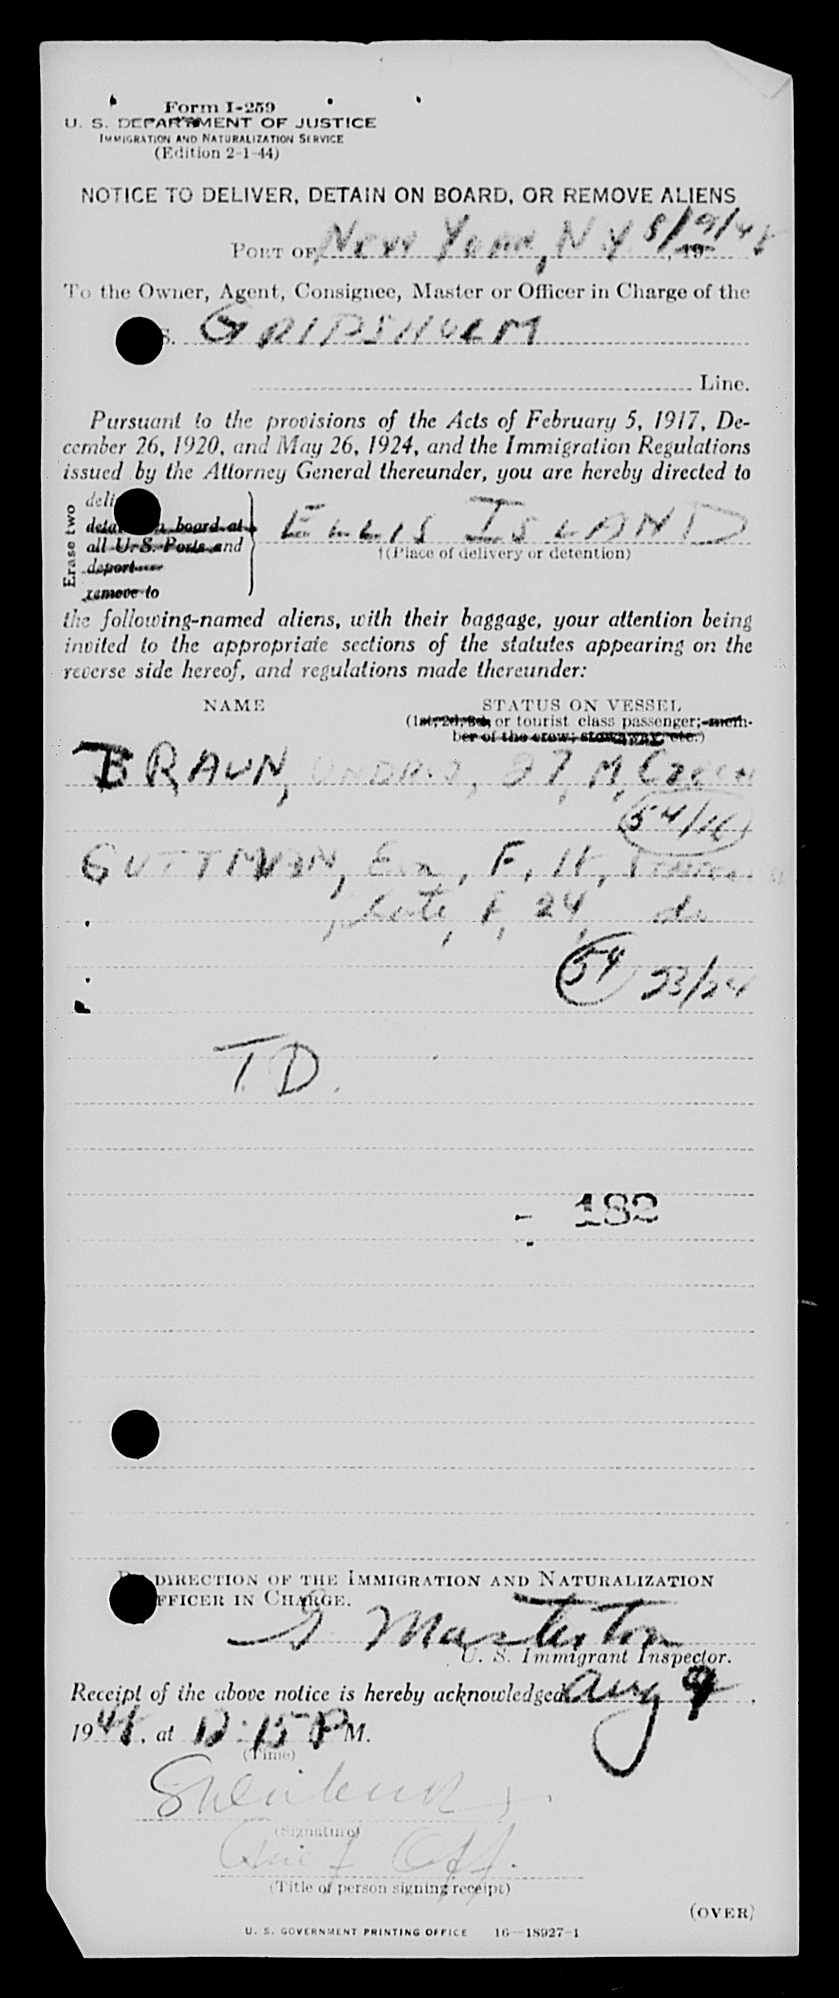 Form I-259
U. S. DEPARTMENT OF JUSTICE
IMMIGRATION AND NATURALIZATION SERVICE
(Edition 2-1-44)
NOTICE TO DELIVER, DETAIN ON BOARD, OR REMOVE ALIENS
PORT OF New York, N Y 8/9/48, 19
To the Owner, Agent, Consignee, Master or Officer in Charge of the
S. GRIPSHOLM
Line.
Pursuant to the provisions of the Acts of February 5, 1917, De-
cember 26, 1920, and May 26, 1924, and the Immigration Regulations
issued by the Attorney General thereunder, you are hereby directed to
Erase two
deli
detain on board at
all U. S. Ports and
deport
remove to
ELLIS ISLAND
†(Place of delivery or detention)
the following-named aliens, with their baggage, your attention being
invited to the appropriate sections of the statutes appearing on the
reverse side hereof, and regulations made thereunder:
NAME STATUS ON VESSEL
(1st, 2d, 3d, or tourist class passenger; mem-
ber of the crew; stowaway, etc.)
BRAUN, ONDREJ, 27, M, Czech
54/16
GUTTMAN, Eva, F, 18,
, F, 24, do
54 23/24
T.D.
182
BY DIRECTION OF THE IMMIGRATION AND NATURALIZATION
OFFICER IN CHARGE.
Masterton
U. S. Immigrant Inspector.
Receipt of the above notice is hereby acknowledged Aug 9,
1948, at 12:15 P M.
(Time)
(Signature)
Chief Off.
(Title of person signing receipt)
(OVER)
U. S. GOVERNMENT PRINTING OFFICE 16—18927-1